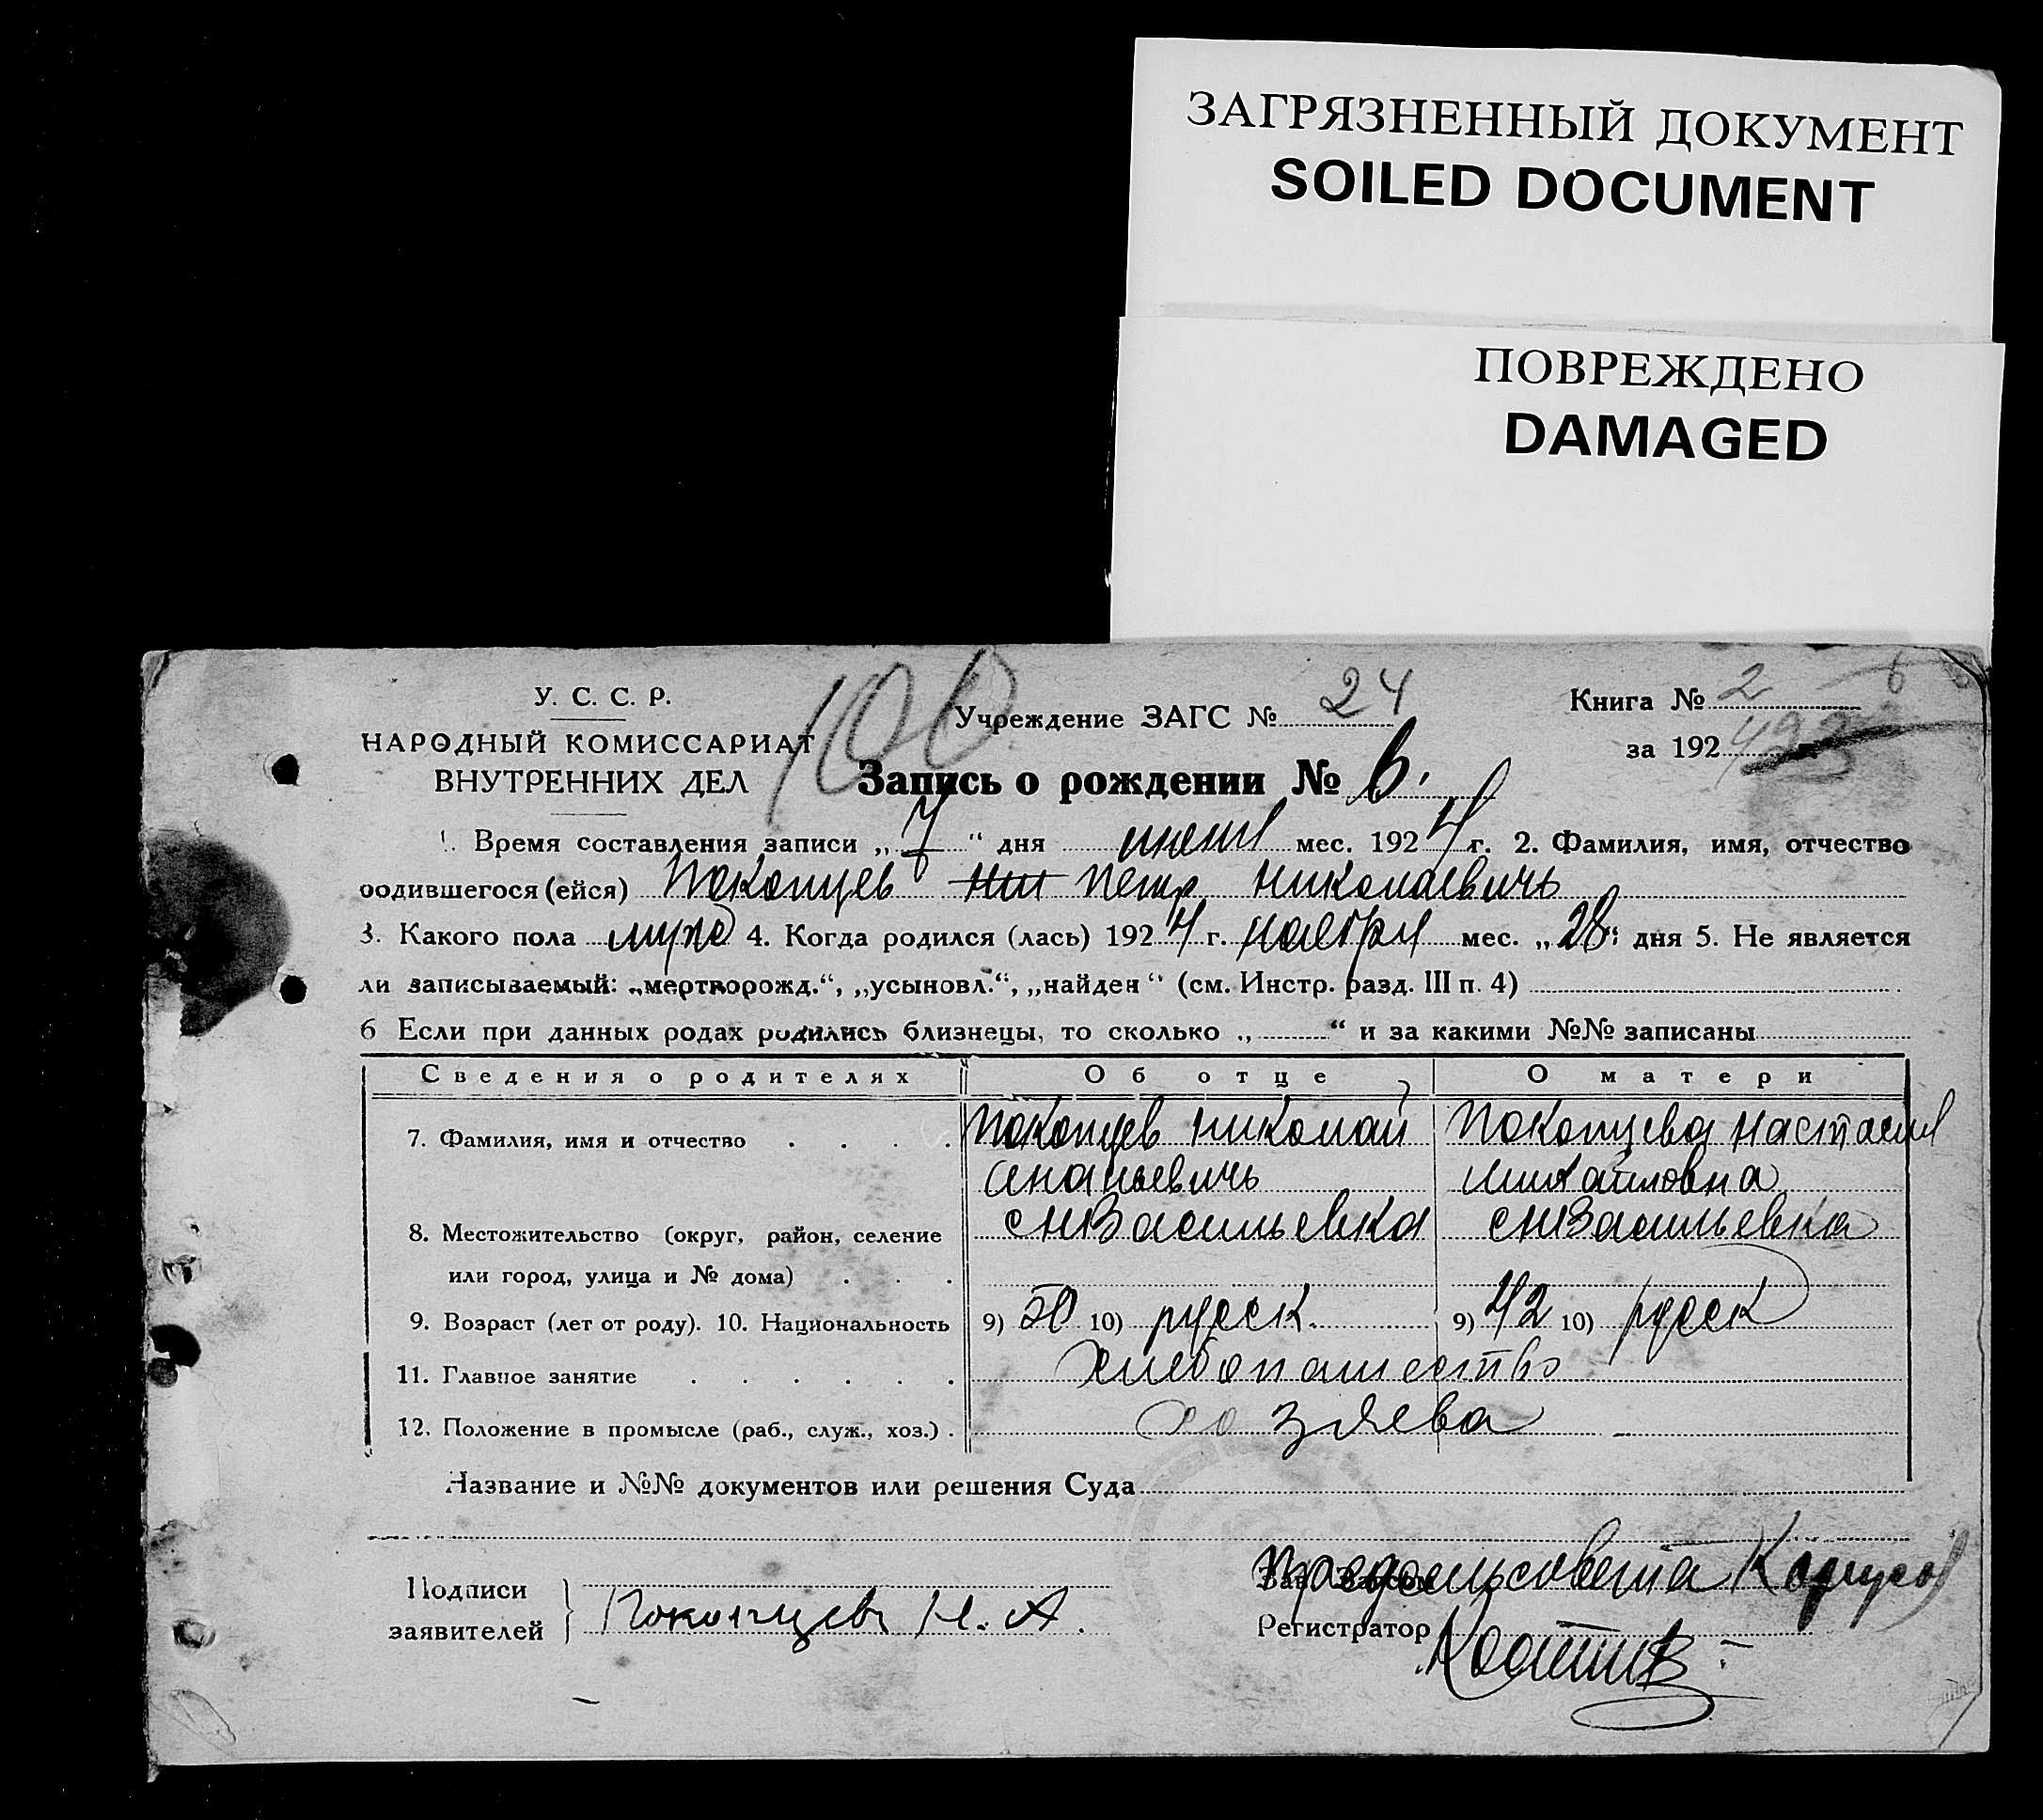 ЗАГРЯЗНЕННЫЙ ДОКУМЕНТ
SOILED DOCUMENT
ПОВРЕЖДЕНО
DAMAGED
У. С. С. Р.
НАРОДНЫЙ КОМИССАРИАТ
ВНУТРЕННИХ ДЕЛ
100
Учреждение ЗАГС № 24
Книга № 2
за 192
Запись о рождении № 6.
1. Время составления записи „7“ дня мес. 1924 г. 2. Фамилия, имя, отчество
родившегося (ейся) Покопцев Петр Николаевичь
3. Какого пола муж 4. Когда родился (лась) 1924 г. ноября мес. „28“ дня 5. Не является
ли записываемый: „мертворожд.“, „усыновл.“, „найден“ (см. Инстр. разд. III п. 4)
6 Если при данных родах родились близнецы, то сколько „ “ и за какими №№ записаны
Сведения о родителях Об отце О матери
7. Фамилия, имя и отчество Покопцев Николай Покопцева Настасия
Ананьевичь Михайловна
8. Местожительство (округ, район, селение с НВасильевка с НВасильевка
или город, улица и № дома)
9. Возраст (лет от роду). 10. Национальность 9) 50 10) русск. 9) 42 10) русск
11. Главное занятие Хлебопашество
12. Положение в промысле (раб., служ., хоз.) хозяева
Название и №№ документов или решения Суда
Подписи
заявителей Покопцевъ Н. А.
Зав. Загсом Предсельсовета
Регистратор